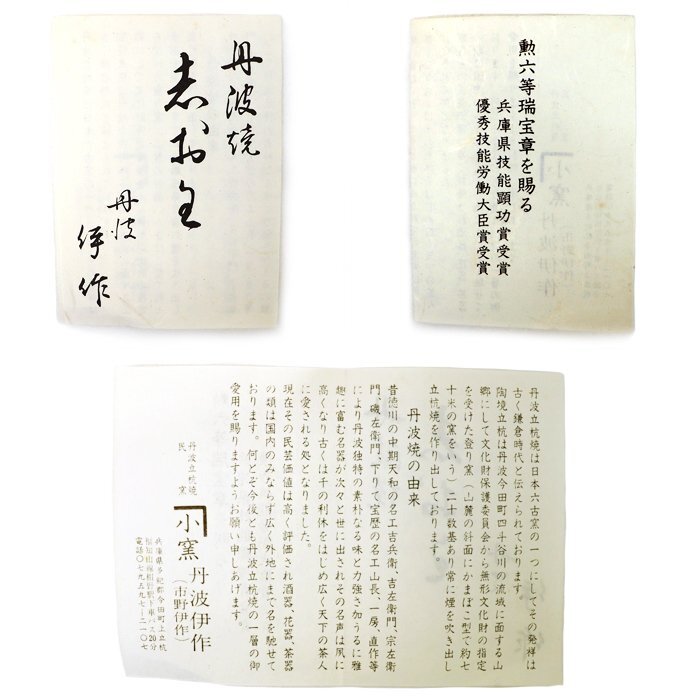 丹波焼
志おり
丹波
伊作
勲六等瑞宝章を賜る
兵庫県技能顕功賞受賞
優秀技能労働大臣賞受賞
丹波立杭焼は日本六古窯の一つにしてその発祥は
古く鎌倉時代と伝えられております。
陶境立杭は丹波今田町四斗谷川の流域に面する山
郷にして文化財保護委員会から無形文化財の指定
を受けた登り窯（山麓の斜面にかまぼこ型で約七
十米の窯をいう）二十数基あり常に煙を吹き出し
立杭焼を作り出しております。
丹波焼の由来
昔徳川の中期天和の名工吉兵衛、吉左衛門、宗左衛
門、磯左衛門、下りて宝歴の名工山長、一房 直作等
により丹波独特の素朴なる味と力強さ加うるに雅
趣に富む名器が次々と世に出されその名声は夙に
高くなり古くは千の利休をはじめ広く天下の茶人
に愛される処となりました。
現在その民芸価値は高く評価され酒器、花器、茶器
の類は国内のみならず広く外地にまで名を馳せて
おります。何とぞ今後とも丹波立杭焼の一層の御
愛用を賜りますようお願い申しあげます。
丹波立杭焼
民窯
小窯 丹波伊作
（市野伊作）
兵庫県多紀郡今田町上立杭
福知山線相野駅下車バス20分
電話〇七九五九七-二一〇七